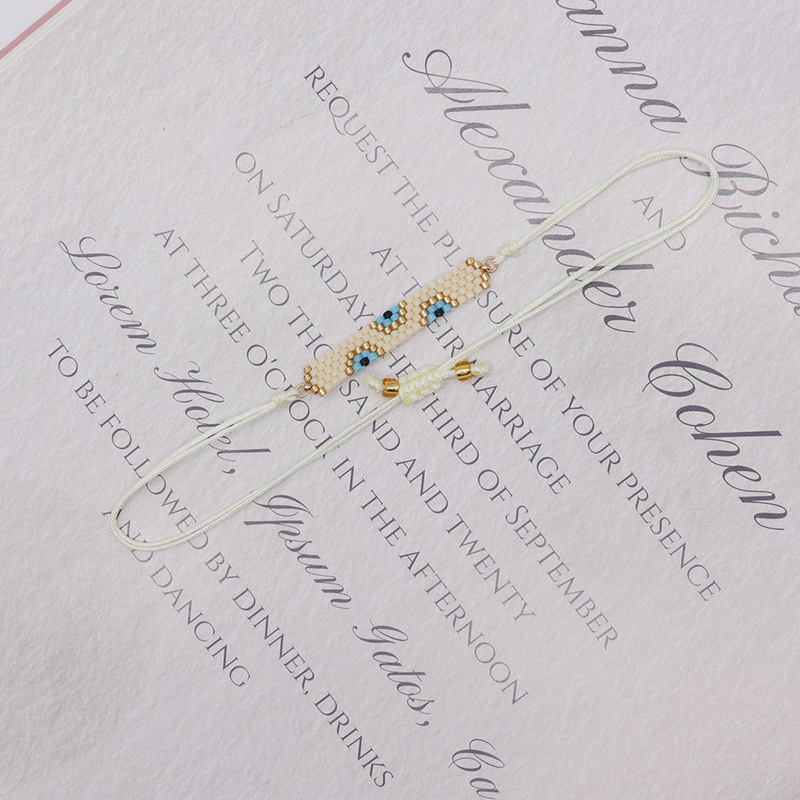 anna Richa
AND
Alexander Cohen
REQUEST THE PLEASURE OF YOUR PRESENCE
AT THEIR MARRIAGE
ON SATURDAY, THE THIRD OF SEPTEMBER
TWO THOUSAND AND TWENTY
AT THREE O'CLOCK IN THE AFTERNOON
Lorem Hotel, Ipsum Gatos, Ca
TO BE FOLLOWED BY DINNER, DRINKS
AND DANCING